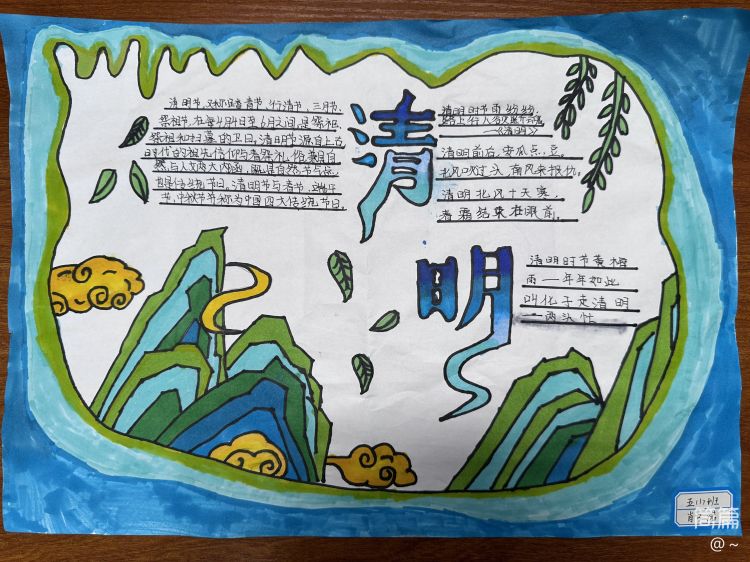 清明节,又称踏青节、行清节、三月节、
祭祖节,在每4月4日至6日之间,是祭祀、
祭祖和扫墓的卫日。清明节源自上古
时代的祖先信仰与春祭礼俗,兼具自
然与人文两大内涵,既是自然节气点,
也是传统节日。清明节与春节、端午
节、中秋节并称为中国四大传统节日。
清明
清明时节雨纷纷,
路上行人欲断魂
——《清明》
清明前后,安瓜点豆。
北风吹过头,南风来报仇。
清明北风十天寒,
春霜结束在眼前。
清明时节黄梅
雨一年年如此
叫化子走清明
一两头忙
五(1)班
简篇
@~